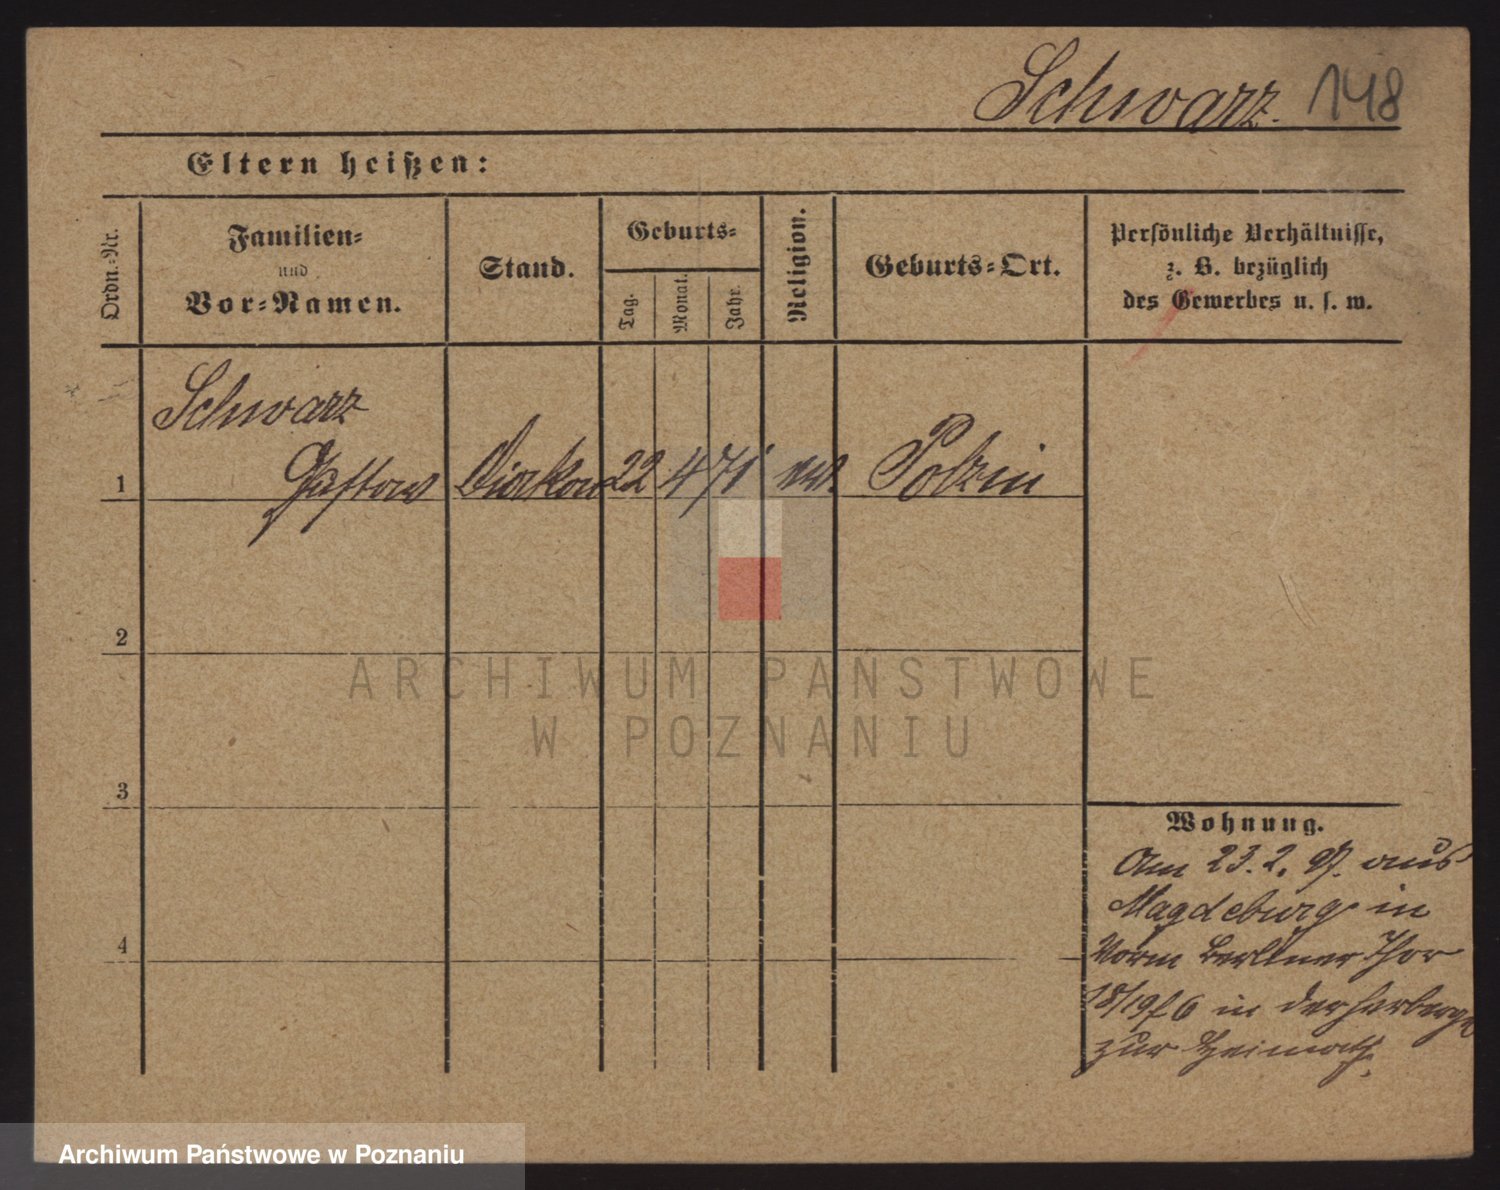 Schwarz. 148
Eltern heißen:
Ordn.-Nr.
Familien-
und
Vor-Namen.
Stand.
Geburts-
Tag.
Monat.
Jahr.
Religion.
Geburts-Ort.
Persönliche Verhältnisse,
z. B. bezüglich
des Gewerbes u. s. w.
Schwarz
1 Gustav 22 4 71 Polzin
2
3
4
Wohnung.
Am 23.2.97. aus
Magdeburg in
Vorm Berliner Thor
18/19 in der Herberge
zur Heimath.
ARCHIWUM PAŃSTWOWE
W POZNANIU
Archiwum Państwowe w Poznaniu